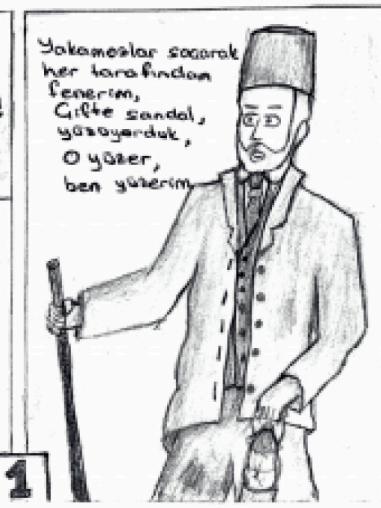 Yakamozlar saçarak
her tarafından
fenerim,
Çifte sandal,
yüzüyorduk,
O yüzer,
ben yüzerim
1